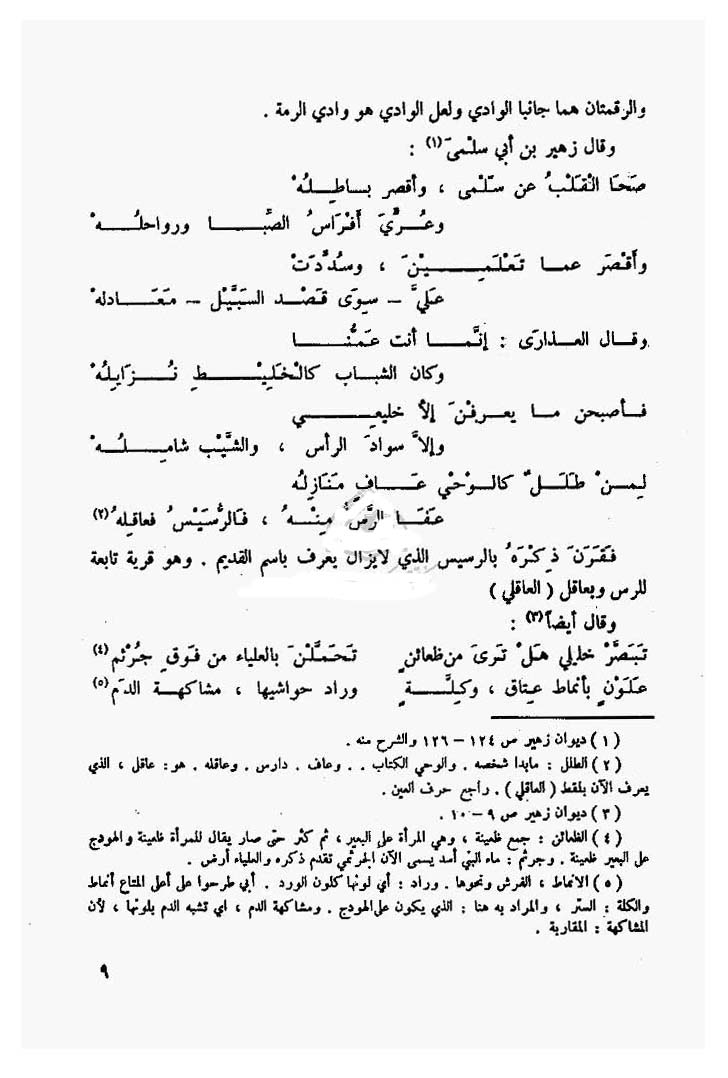 والرقمتان هما جانبا الوادي ولعل الوادي هو وادي الرمة .
وقال زهير بن أبي سلْمىَ (١) :
صَحَا الْقَلْبُ عن سَلْمى ، وأقصر بـاطِلُهْ
وعُرِّيَ أَفْرَاسُ الصِّبَا ورواحلُهْ
وأَقْصَرَ عما تَعْلَمِيْنَ ، وسُدِّدَتْ
عَليَّ – سِوَى قَصْد السَبِيْل – مَعَادله
وقال العذارَى : إنَّمَا أنت عَمُّنَا
وكان الشباب كالْخَلِيْطِ نُزَايِلُهْ
فأصبحن ما يعرفْنَ إلاَّ خليقتي
وإلاَّ سوادَ الرأس ، والشَّيْب شامِلُهْ
لِمِنْ طَلَلٌ كالوْحْيِ عَافٍ مَنَازِلُه
عَفَا الرَّسُّ مِنْهُ ، فَالرُّسَيْسُ فعاقِلُه (٢)
فَقَرَنَ ذِكْرَهُ بالرسيس الذي لايزال يعرف باسم القديم . وهو قرية تابعة
للرس وبعاقل ( العاقلي )
وقال أيضاً (٣) :
تَبَصَّرْ خليلي هَلْ تَرىَ من ظعائنٍ تَحَمَّلْنَ بالعلياء من فوقِ جُرْثم (٤)
عَلَوْن بأنماط عِتاق ، وكِلَّةٍ وراد حواشيها ، مشاكهة الدَم (٥)
( ١ ) ديوان زهير ص ١٢٤ – ١٢٦ والشرح منه .
( ٢ ) الطلل : مابدا شخصه . والوحي الكتاب . . وعاف . دارس . وعاقله . هو : عاقل ، الذي
يعرف الآن بلفظ ( العاقلي ) . راجع حرف العين .
( ٣ ) ديوان زهير ص ٩ – ١٠ .
( ٤ ) الظعائن : جمع ظعينة ، وهي المرأة على البعير ، ثم كثر حتى صار يقال للمرأة ظعينة والهودج
على البعير ظعينة . وجرثم : ماء لبني أسد يسمى الآن الجرثمي تقدم ذكره والعلياء أرض .
( ٥ ) الانماط ، الفرش ونحوها . وراد : أي لونها كلون الورد . أي طرحوا على أعلى المتاع أنماط
والكلة : الستر ، والمراد به هنا : الذي يكون على الهودج . ومشاكهة الدم ، اي تشبه الدم بلونها ، لأن
المشاكهة : المقاربة .
٩